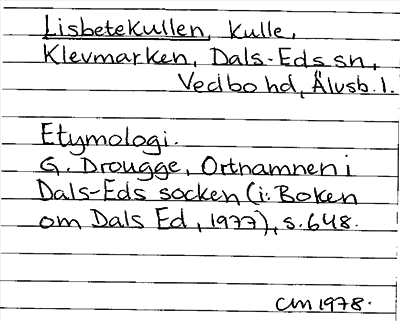 Lisbetekullen, Kulle,
Klevmarken, Dals-Eds sn,
Vedbo hd, Älvsb. l.
Etymologi.
G. Drougge, Ortnamnen i
Dals-Eds socken (i: Boken
om Dals Ed, 1977), s. 648.
CM 1978.